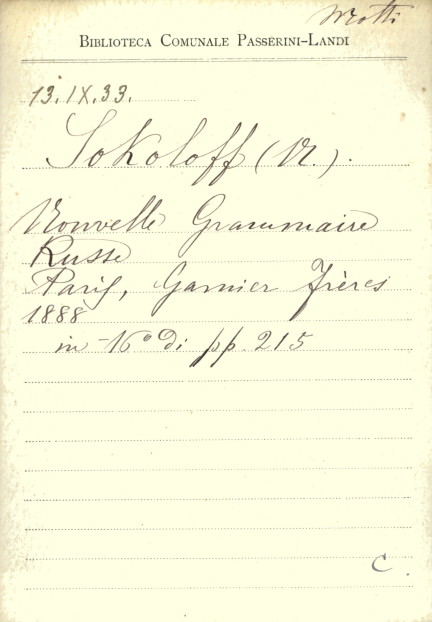 Miotti
BIBLIOTECA COMUNALE PASSERINI-LANDI
13.IX.33.
Sokoloff (N.).
Nouvelle Grammaire
Russe
Paris, Garnier Frères
1888
in -16º di pp. 215
C.